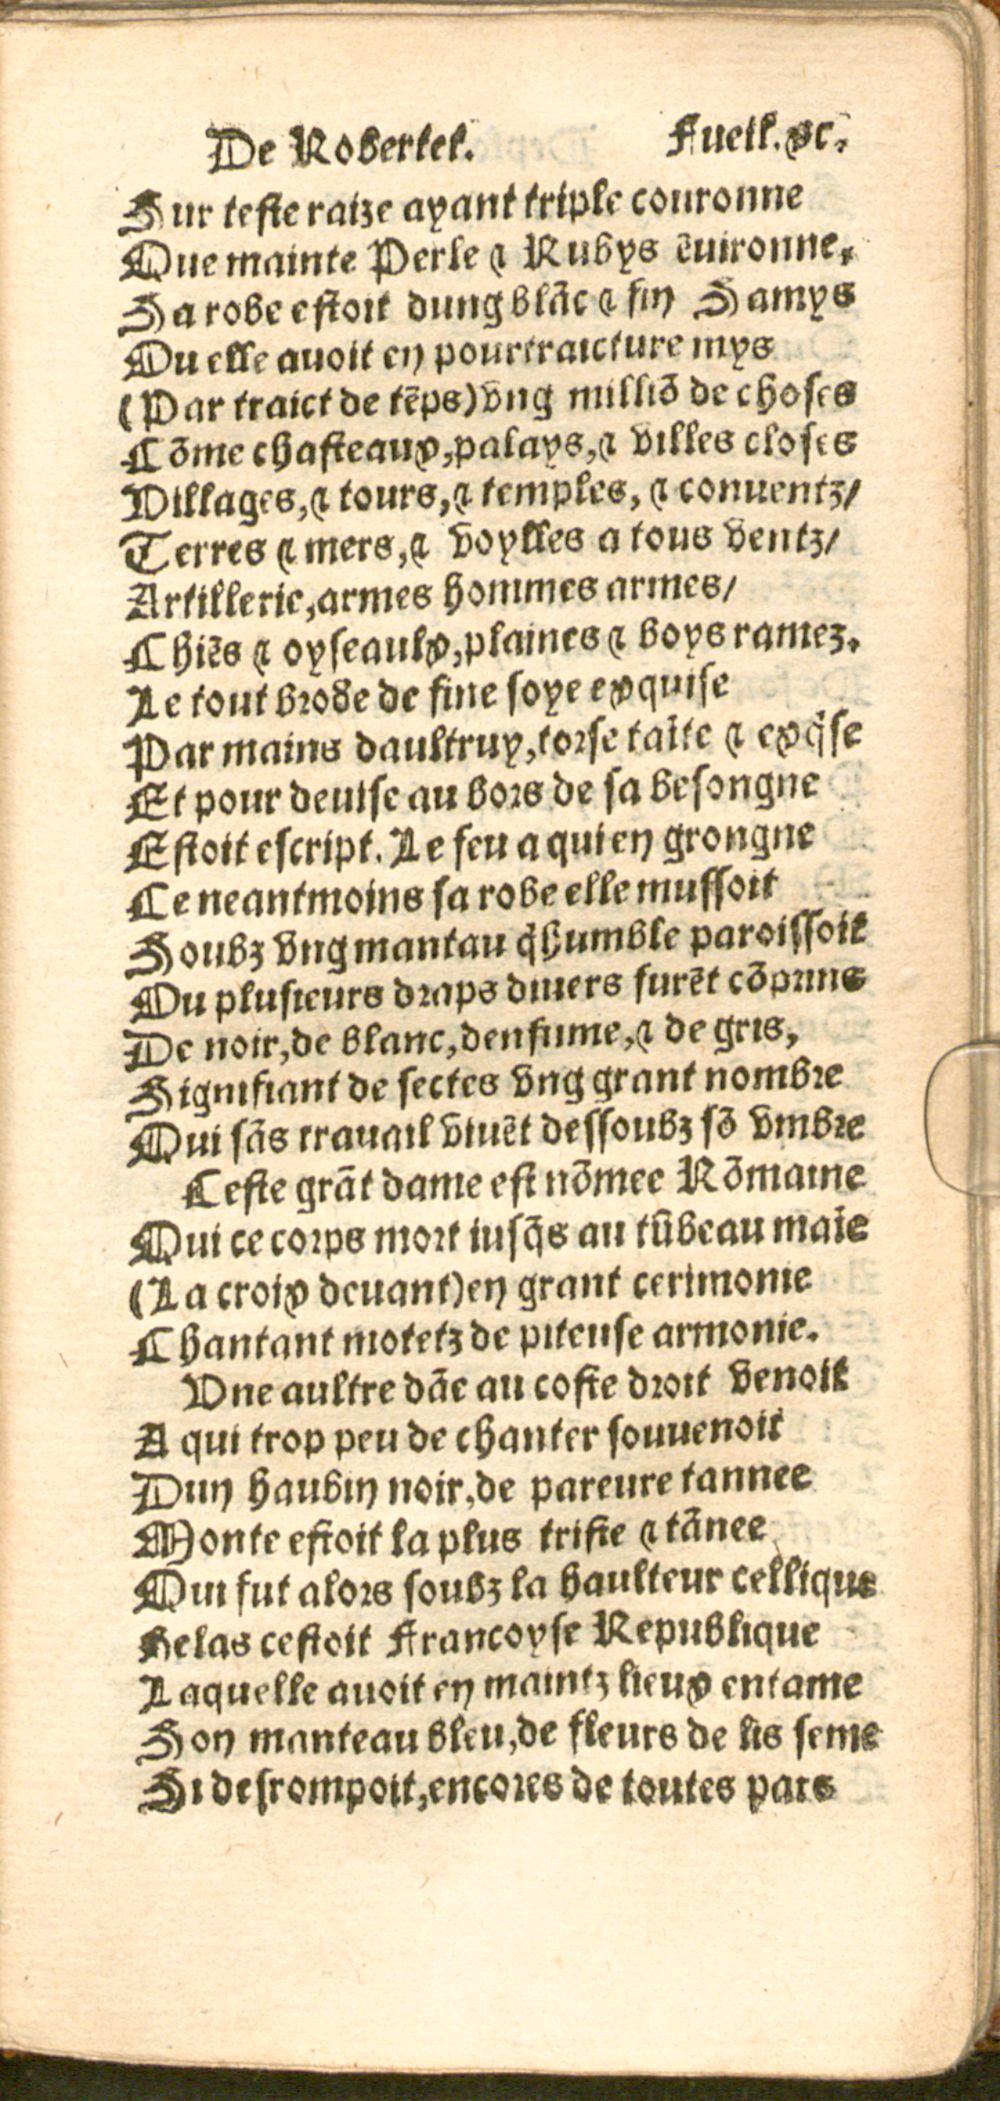 De Robertet. Fueil. xc.
Sur teste raize ayant triple couronne
Que mainte Perle & Rubys ẽuironne,
Sa robe estoit dung blãc & fin Samys
Ou elle avoit en pourtraicture mys
(Par traict de tẽps) vng milliõ de choses
Cõme chasteaux, palays, & villes closes
Villages, & tours, & temples, & conuentz/
Terres & mers, & voylles a tous ventz/
Artillerie, armes hommes armes/
Chiẽs & oyseaulx, plaines & boys ramez.
Le tout brode de fine soye exquise
Par mains daultruy, torse taĩte & exq̃se
Et pour deuise au bors de sa besongne
Estoit escript. Le feu a qui en grongne
Ce neantmoins sa robe elle mussoit
Soubz vng mantau q̃ humble paroissoit
Ou plusieurs draps diuers furẽt cõprins
De noir, de blanc, denfume, & de gris,
Signifiant de sectes vng grant nombre
Qui sãs trauail viuẽt dessoubz sõ vmbre
Ceste grãt dame est nõmee Rõmaine
Qui ce corps mort iusq̃s au tũbeau maĩe
(La croix deuant) en grant cerimonie
Chantant motetz de piteuse armonie.
Vne aultre dãe au coste droit venoit
A qui trop peu de chanter souuenoit
Dun haubin noir, de pareure tannee
Monte estoit la plus triste & tãnee
Qui fut alors soubz la haulteur cellique
Helas cestoit Francoyse Republique
Laquelle avoit en maintz lieux entame
Son manteau bleu, de fleurs de lis seme
Si desrompoit, encores de toutes pars